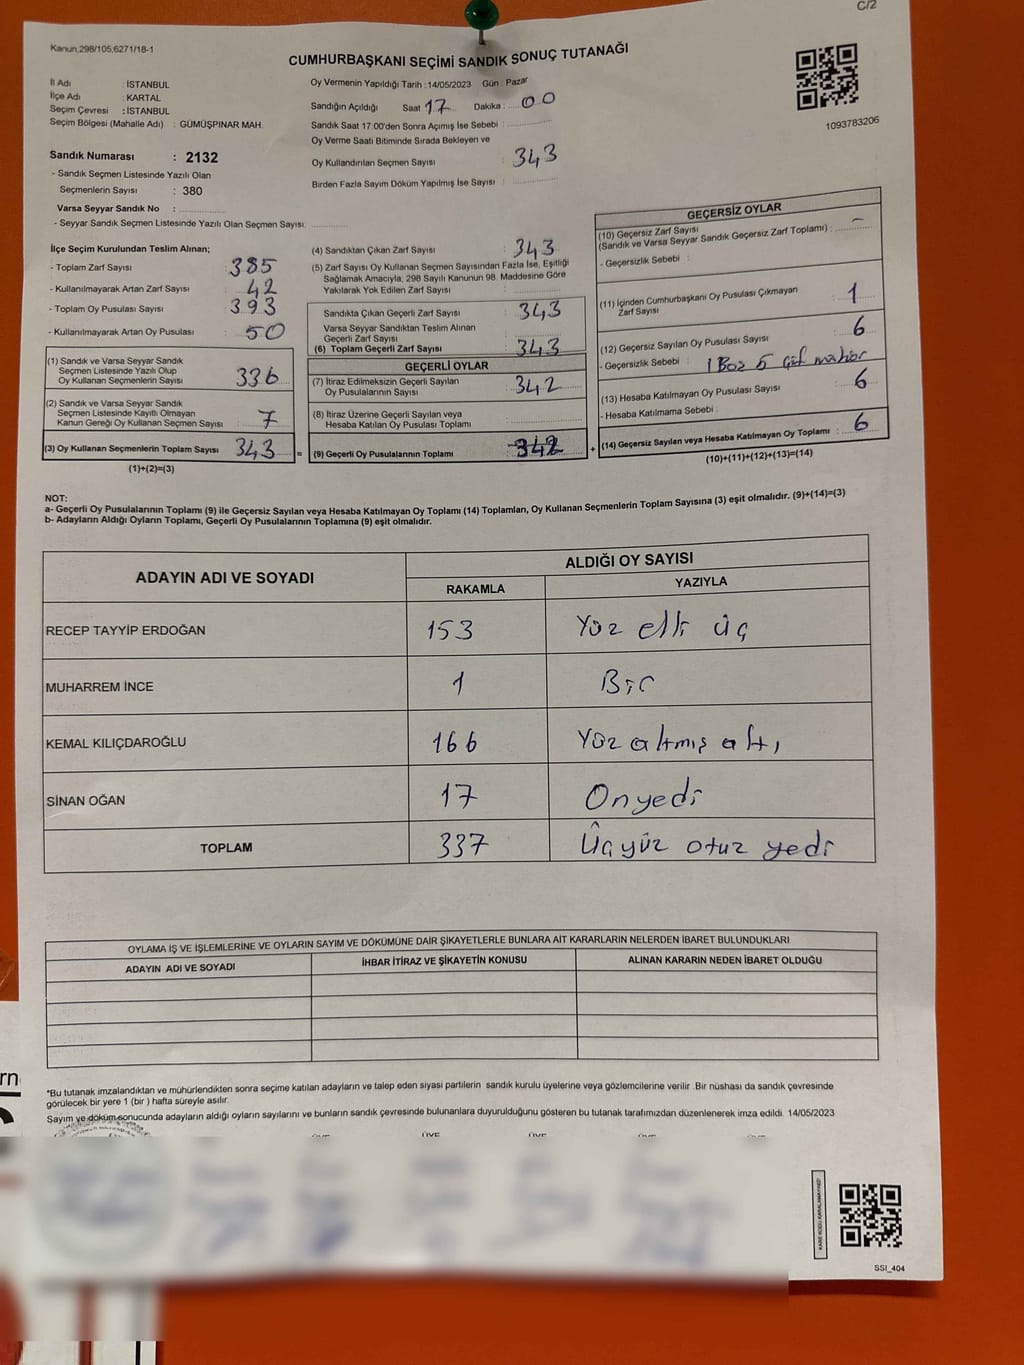 C/2
Kanun,298/105,6271/18-1
CUMHURBAŞKANI SEÇİMİ SANDIK SONUÇ TUTANAĞI
İl Adı : İSTANBUL
İlçe Adı : KARTAL
Seçim Çevresi : İSTANBUL
Seçim Bölgesi (Mahalle Adı) : GÜMÜŞPINAR MAH.
Sandık Numarası : 2132
- Sandık Seçmen Listesinde Yazılı Olan
Seçmenlerin Sayısı : 380
Varsa Seyyar Sandık No :
- Seyyar Sandık Seçmen Listesinde Yazılı Olan Seçmen Sayısı:
Oy Vermenin Yapıldığı Tarih : 14/05/2023 Gün : Pazar
Sandığın Açıldığı Saat 17 Dakika : 00
Sandık Saat 17:00'den Sonra Açımış İse Sebebi :
Oy Verme Saati Bitiminde Sırada Bekleyen ve
Oy Kullandırılan Seçmen Sayısı : 343
Birden Fazla Sayım Döküm Yapılmış İse Sayısı :
1093783206
İlçe Seçim Kurulundan Teslim Alınan;
- Toplam Zarf Sayısı : 385
- Kullanılmayarak Artan Zarf Sayısı : 42
- Toplam Oy Pusulası Sayısı : 393
- Kullanılmayarak Artan Oy Pusulası : 50
(1) Sandık ve Varsa Seyyar Sandık
Seçmen Listesinde Yazılı Olup
Oy Kullanan Seçmenlerin Sayısı : 336
(2) Sandık ve Varsa Seyyar Sandık
Seçmen Listesinde Kayıtlı Olmayan
Kanun Gereği Oy Kullanan Seçmen Sayısı : 7
(3) Oy Kullanan Seçmenlerin Toplam Sayısı : 343
(1)+(2)=(3)
(4) Sandıktan Çıkan Zarf Sayısı : 343
(5) Zarf Sayısı Oy Kullanan Seçmen Sayısından Fazla İse, Eşitliği
Sağlamak Amacıyla, 298 Sayılı Kanunun 98. Maddesine Göre
Yakılarak Yok Edilen Zarf Sayısı :
Sandıkta Çıkan Geçerli Zarf Sayısı : 343
Varsa Seyyar Sandıktan Teslim Alınan
Geçerli Zarf Sayısı :
(6) Toplam Geçerli Zarf Sayısı : 343
GEÇERLİ OYLAR
(7) İtiraz Edilmeksizin Geçerli Sayılan
Oy Pusulalarının Sayısı : 342
(8) İtiraz Üzerine Geçerli Sayılan veya
Hesaba Katılan Oy Pusulası Toplamı :
= (9) Geçerli Oy Pusulalarının Toplamı : 342 +
GEÇERSİZ OYLAR
(10) Geçersiz Zarf Sayısı
(Sandık ve Varsa Seyyar Sandık Geçersiz Zarf Toplamı) : -
- Geçersizlik Sebebi :
(11) İçinden Cumhurbaşkanı Oy Pusulası Çıkmayan
Zarf Sayısı : 1
(12) Geçersiz Sayılan Oy Pusulası Sayısı : 6
- Geçersizlik Sebebi : 1 Boş 5 Çift mühür
(13) Hesaba Katılmayan Oy Pusulası Sayısı : 6
- Hesaba Katılmama Sebebi :
(14) Geçersiz Sayılan veya Hesaba Katılmayan Oy Toplamı : 6
(10)+(11)+(12)+(13)=(14)
NOT:
a- Geçerli Oy Pusulalarının Toplamı (9) ile Geçersiz Sayılan veya Hesaba Katılmayan Oy Toplamı (14) Toplamları, Oy Kullanan Seçmenlerin Toplam Sayısına (3) eşit olmalıdır. (9)+(14)=(3)
b- Adayların Aldığı Oyların Toplamı, Geçerli Oy Pusulalarının Toplamına (9) eşit olmalıdır.
ADAYIN ADI VE SOYADI ALDIĞI OY SAYISI
RAKAMLA YAZIYLA
RECEP TAYYİP ERDOĞAN 153 Yüz elli üç
MUHARREM İNCE 1 Bir
KEMAL KILIÇDAROĞLU 166 Yüz altmış altı
SİNAN OĞAN 17 Onyedi
TOPLAM 337 Üçyüz otuz yedi
OYLAMA İŞ VE İŞLEMLERİNE VE OYLARIN SAYIM VE DÖKÜMÜNE DAİR ŞİKAYETLERLE BUNLARA AİT KARARLARIN NELERDEN İBARET BULUNDUKLARI
ADAYIN ADI VE SOYADI İHBAR İTİRAZ VE ŞİKAYETİN KONUSU ALINAN KARARIN NEDEN İBARET OLDUĞU
*Bu tutanak imzalandıktan ve mühürlendikten sonra seçime katılan adayların ve talep eden siyasi partilerin sandık kurulu üyelerine veya gözlemcilerine verilir .Bir nüshası da sandık çevresinde
görülecek bir yere 1 (bir ) hafta süreyle asılır.
Sayım ve döküm sonucunda adayların aldığı oyların sayılarını ve bunların sandık çevresinde bulunanlara duyurulduğunu gösteren bu tutanak tarafımızdan düzenlenerek imza edildi. 14/05/2023
ÜYE
SSI_404